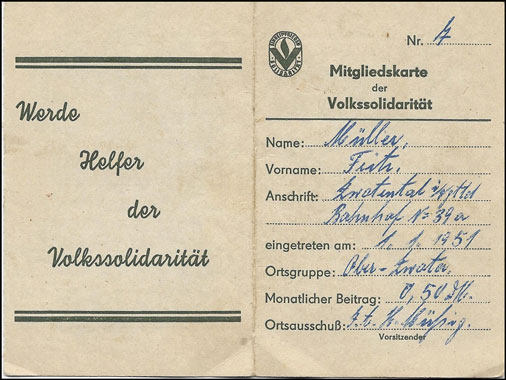 Werde
Helfer
der
Volkssolidarität
VOLKSSOLIDARITÄT
Nr. 4
Mitgliedskarte
der
Volkssolidarität
Name: Müller,
Vorname: Fritz.
Anschrift: Zwotental i/Vgtld
Bahnhof No 39a
eingetreten am: 1. 1. 1951
Ortsgruppe: Ober-Zwota.
Monatlicher Beitrag: 0,50 DM.
Ortsausschuß:
Vorsitzender